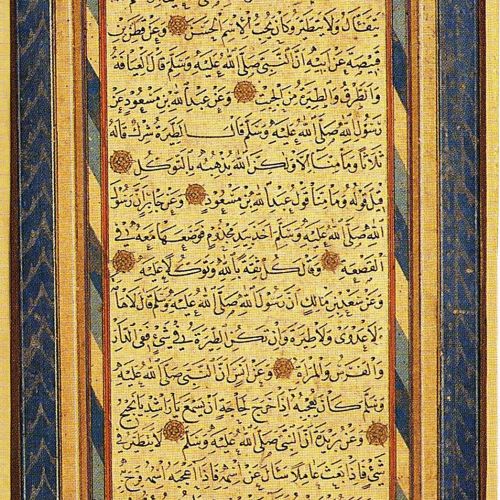 يتفأل ولا يتطير وكان يحب الاسم الحسن وعن قطن بن
قبيصة عن ابيه ان النبي صلى الله عليه وسلم قال العيافة
والطرق والطيرة من الجبت وعن عبد الله بن مسعود عن
رسول الله صلى الله عليه وسلم قال الطيرة شرك قاله
ثلاثا وما منا الا ولكن الله يذهبه بالتوكل
قيل قوله وما منا قول عبد الله بن مسعود وعن جابر ان رسول
الله صلى الله عليه وسلم اخذ بيد مجذوم فوضعها معه في
القصعة وقال كل ثقة بالله وتوكلا عليه
وعن سعد بن مالك ان رسول الله صلى الله عليه وسلم قال لا هامة
ولا عدوى ولا طيرة وان تكن الطيرة في شيء ففي الدار
والفرس والمرأة وعن انس ان النبي صلى الله عليه
وسلم كان يعجبه اذا خرج لحاجة ان يسمع يا راشد يا نجيح
وعن بريدة ان النبي صلى الله عليه وسلم لا يتطير في
شيء فاذا بعث عاملا سأل عن اسمه فاذا اعجبه اسمه فرح